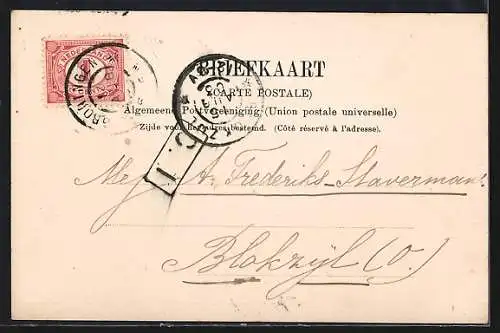 BRIEFKAART
(CARTE POSTALE)
Algemeene Postvereeniging (Union postale universelle)
Zijde voor het adres bestemd. (Côté réservé à l'adresse).
GRONINGEN
Mej A. Frederiks-Staverman
Blokzijl (O.)